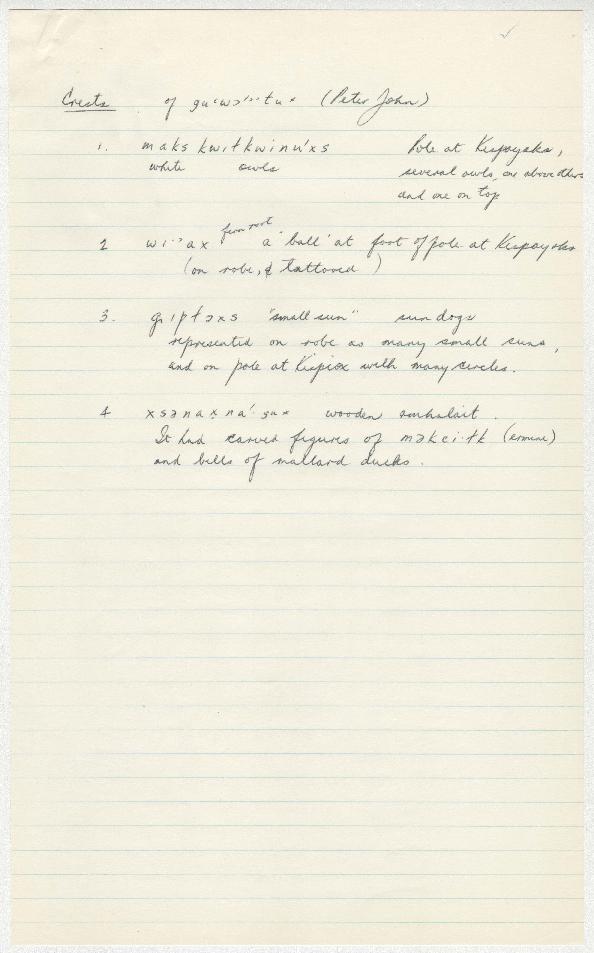 Crests of gu·wɔ'··tu× (Peter John)
1. maks kwɪtkwinu'xs Pole at Kispayaks,
white owls several owls, one above others
and one on top
2 wi·'ax fern root a 'ball' at foot of pole at Kispayaks
(on robe, & tattooed)
3. gɪptəxs "small sun" sun dogs
represented on robe as many small suns,
and on pole at Kispiox with many circles.
4 xsənaxna'· wooden amhalait.
It had carved figures of məkci·tk (ermine)
and bills of mallard ducks.